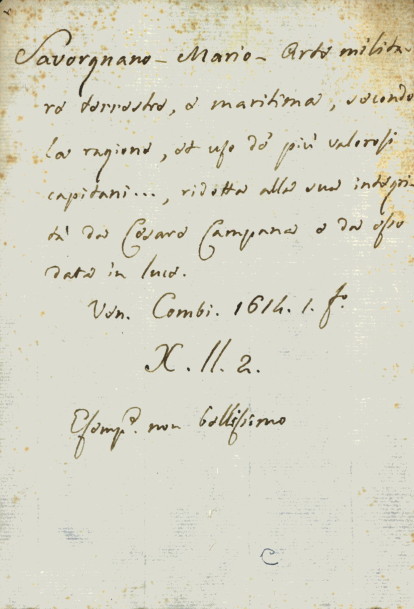 Savorgnano - Mario - Arte milita-
re terrestre, e maritima, secondo
la ragione, et uso de' più valorosi
capitani..., ridotta alla sua integri-
tà da Cesare Campana e da esso
data in luce.
Ven. Combi. 1614. 1. fo.
X. ll. 2.
Esemp.e non bellissimo
C